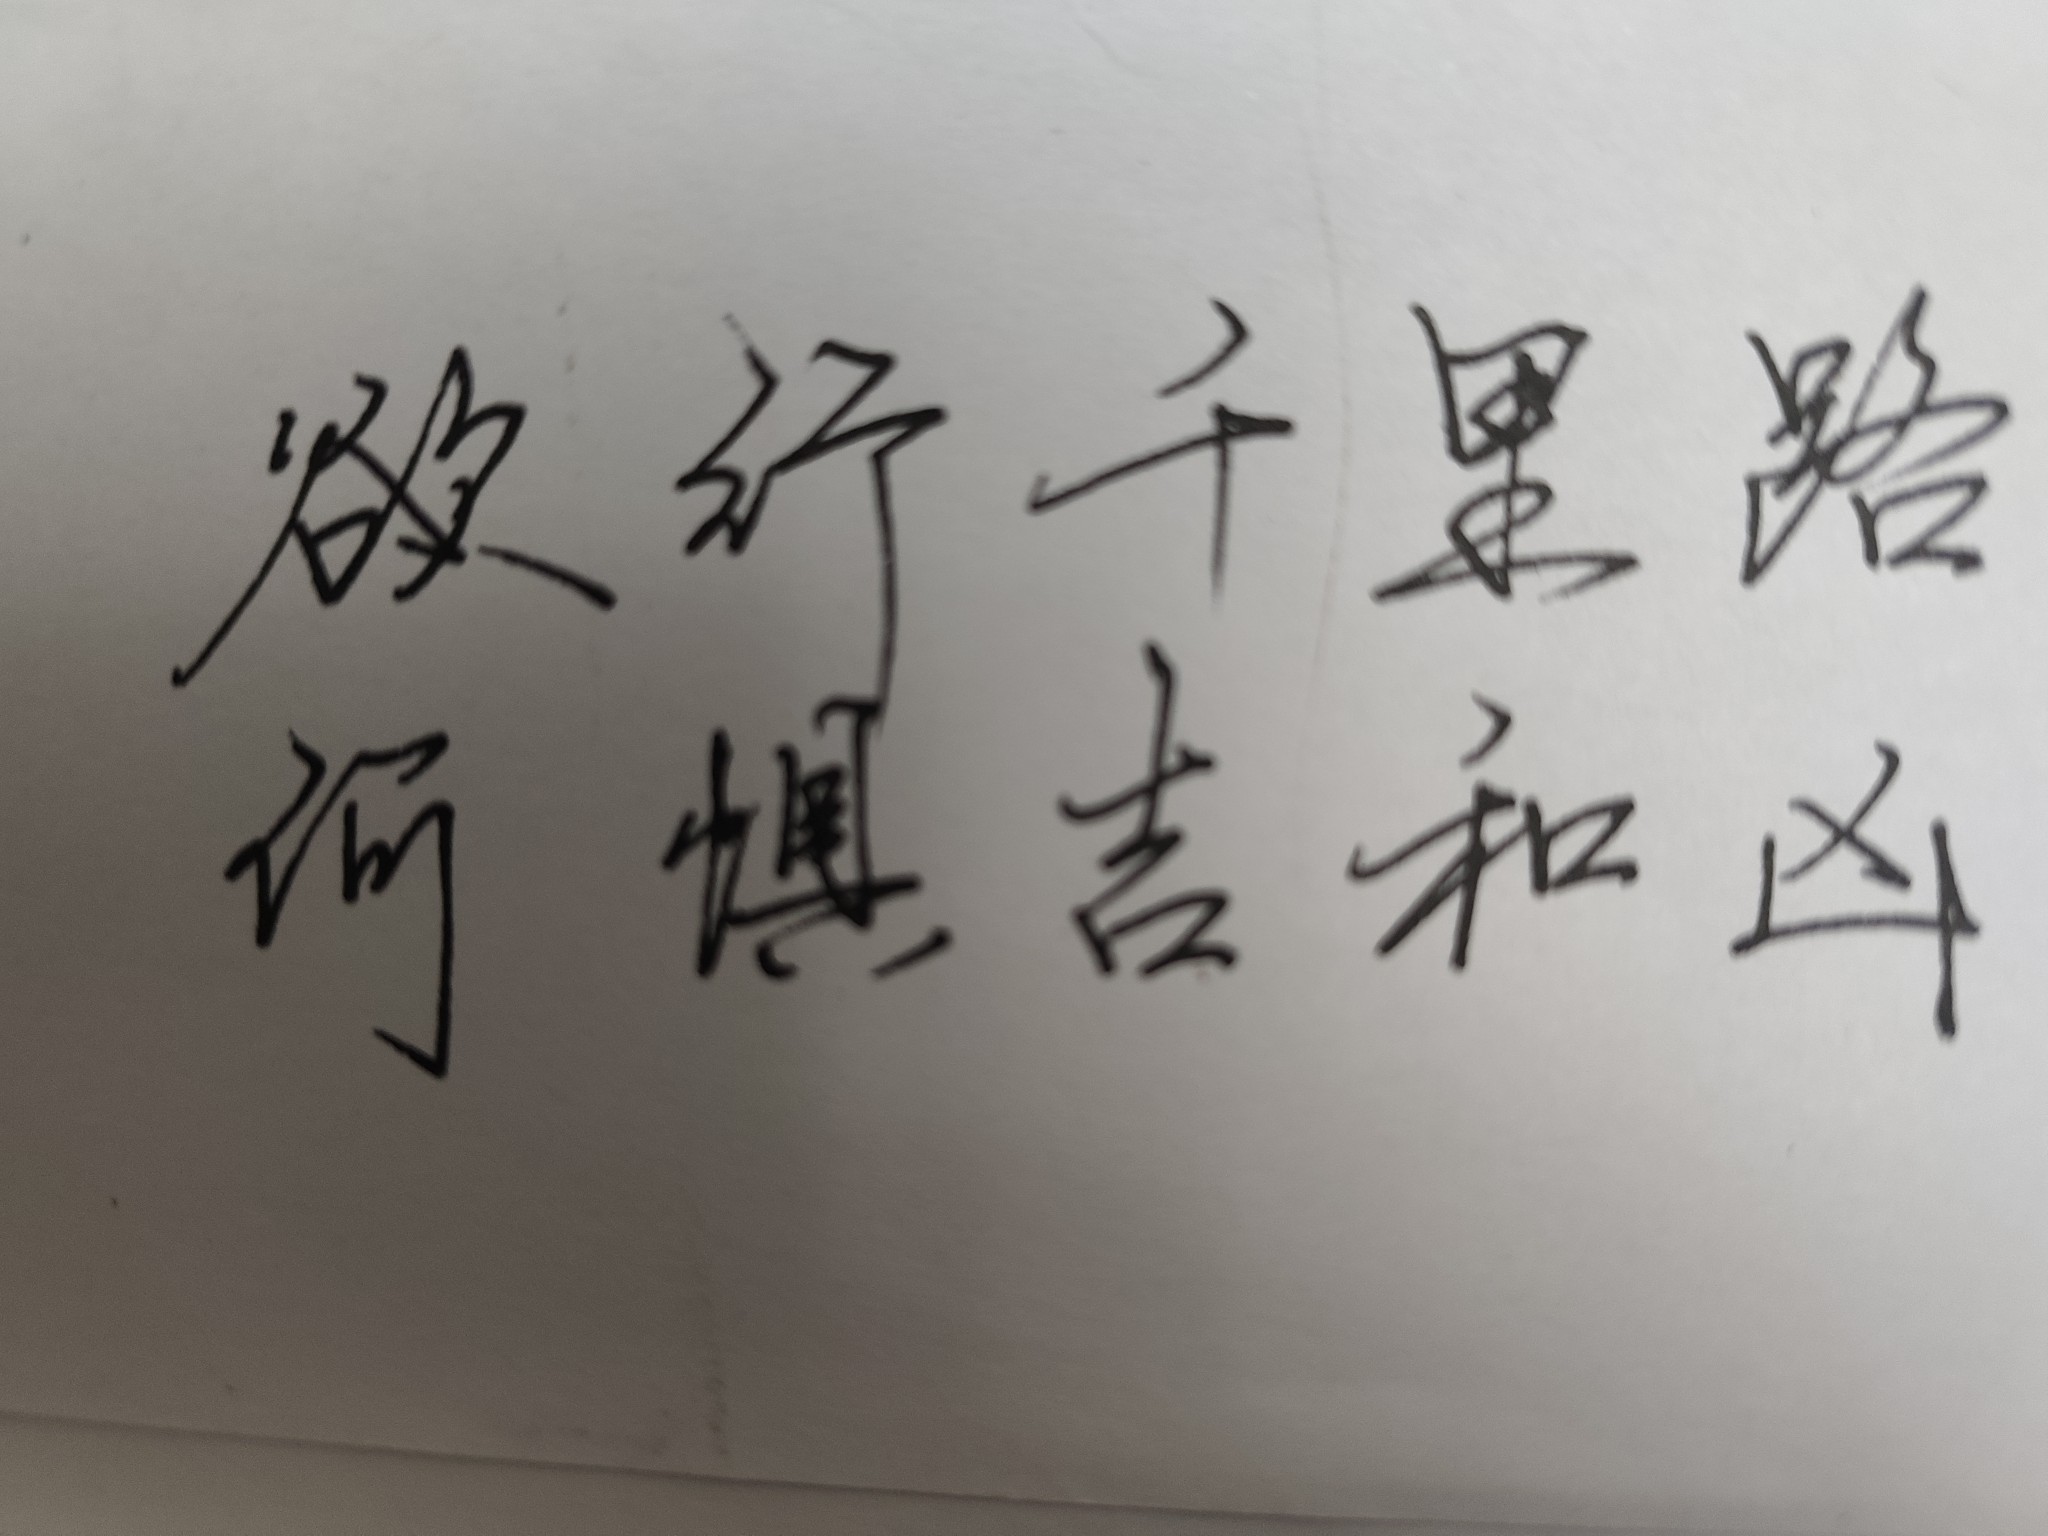 欲行千里路
何惧吉和凶